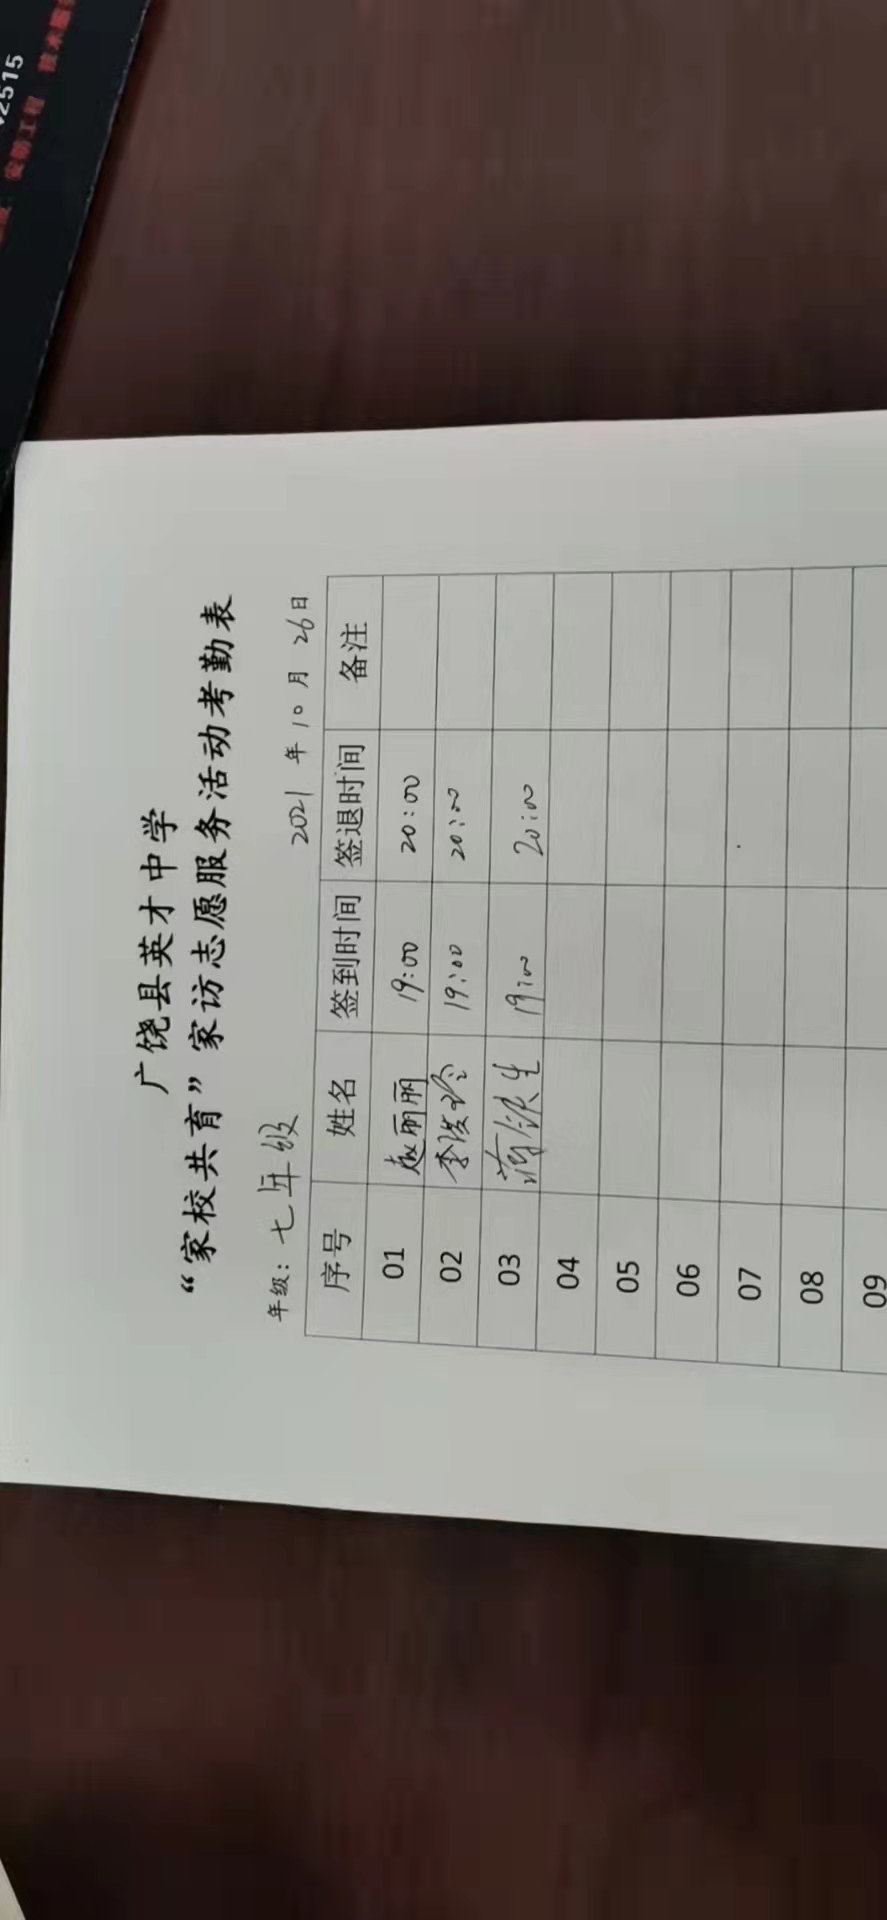 2515
安防工程 技术服
广饶县英才中学
“家校共育”家访志愿服务活动考勤表
年级：七年级 2021 年 10 月 26 日
序号 姓名 签到时间 签退时间 备注
01 赵丽丽 19:00 20:00
02 李俊玲 19:00 20:00
03 蒋铁生 19:00 20:00
04
05
06
07
08
09